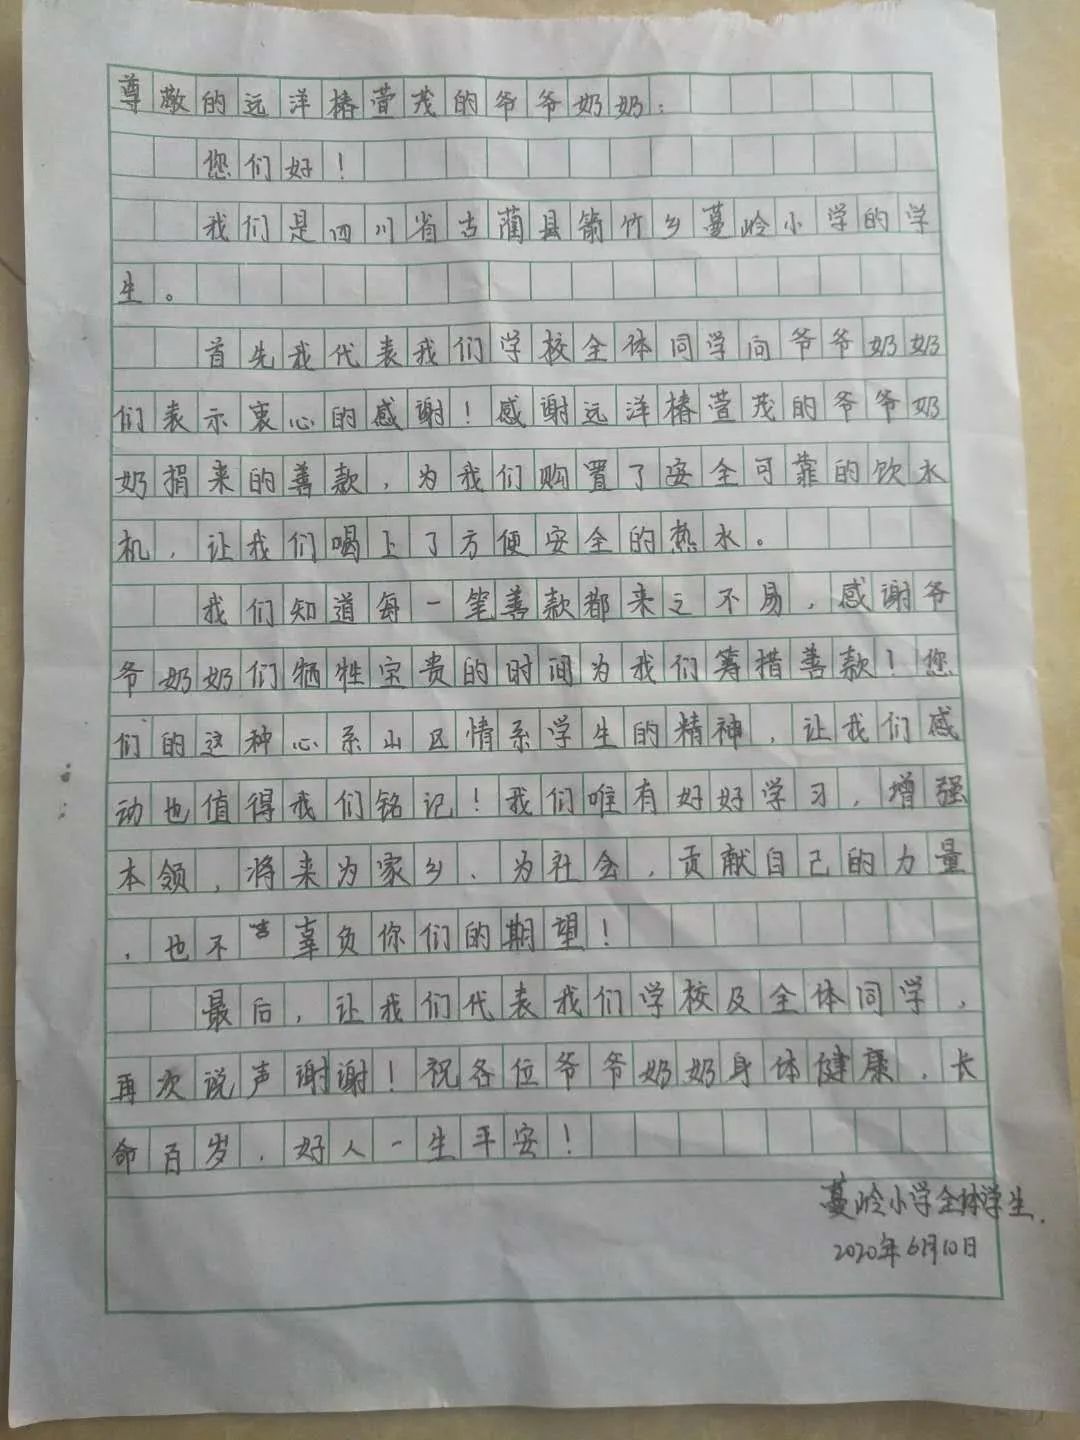 尊敬的远洋椿萱茂的爷爷奶奶：
您们好！
我们是四川省古蔺县箭竹乡蔓岭小学的学
生。
首先我代表我们学校全体同学向爷爷奶奶
们表示衷心的感谢！感谢远洋椿萱茂的爷爷奶
奶捐来的善款，为我们购置了安全可靠的饮水
机，让我们喝上了方便安全的热水。
我们知道每一笔善款都来之不易，感谢爷
爷奶奶们牺牲宝贵的时间为我们筹措善款！您
们的这种心系山区情系学生的精神，让我们感
动也值得我们铭记！我们唯有好好学习，增强
本领，将来为家乡、为社会，贡献自己的力量
，也不会辜负你们的期望！
最后，让我们代表我们学校及全体同学，
再次说声谢谢！祝各位爷爷奶奶身体健康，长
命百岁，好人一生平安！
蔓岭小学全体学生.
2020年6月10日